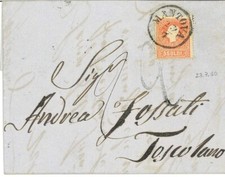 MANTOVA
Sigr
Andrea Fossati
Toscolano